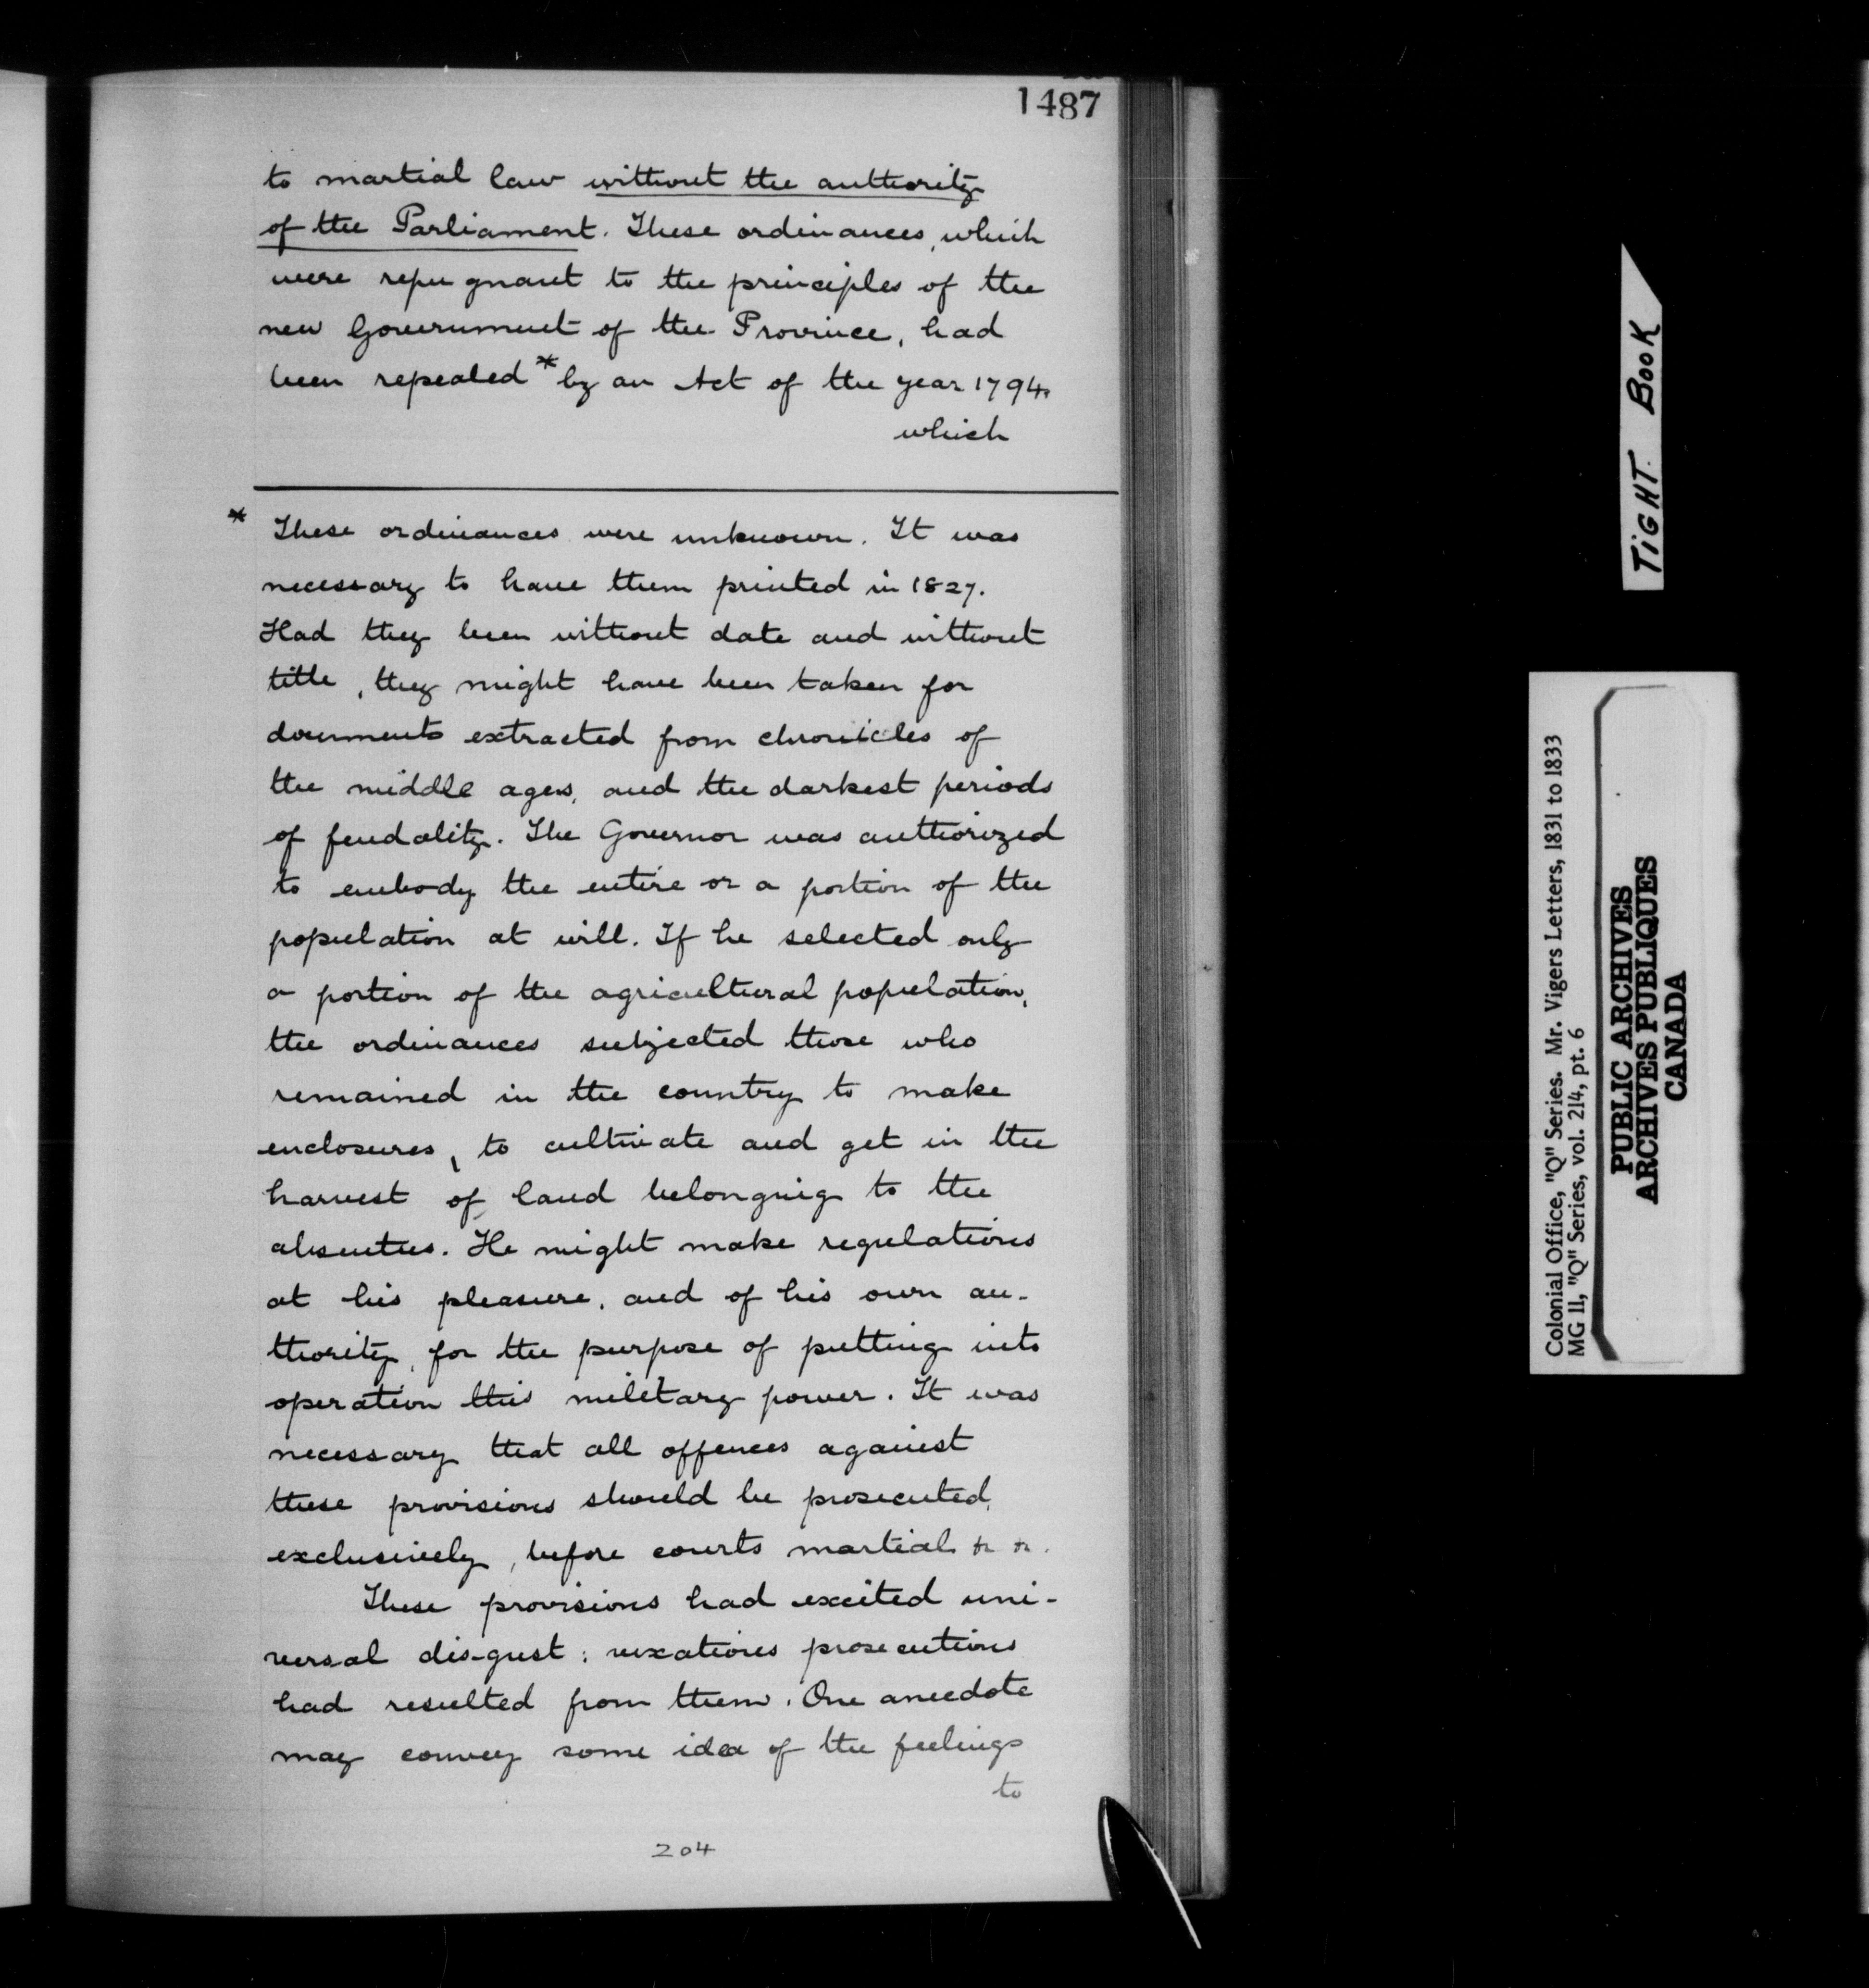 1487
to martial law without the authority
of the Parliament. These ordinances, which
were repugnant to the principles of the
new Government of the Province, had
been repealed * by an Act of the year 1794.
which
* These ordinances were unknown. It was
necessary to have them printed in 1827.
Had they been without date and without
title, they might have been taken for
documents extracted from chronicles of
the middle ages, and the darkest periods
of feudality. The Governor was authorized
to embody the entire or a portion of the
population at will. If he selected only
a portion of the agricultural population,
the ordinances subjected those who
remained in the country to make
enclosures, to cultivate and get in the
harvest of land belonging to the
absentees. He might make regulations
at his pleasure, and of his own au-
thority, for the purpose of putting into
operation this military power. It was
necessary that all offences against
these provisions should be prosecuted,
exclusively, before courts martial &c &c.
These provisions had excited uni-
versal dis-gust: vexatious prosecutions
had resulted from them. One anecdote
may convey some idea of the feelings
to
204
TIGHT BOOK
Colonial Office, "Q" Series. Mr. Vigers Letters, 1831 to 1833
MG 11, "Q" Series, vol. 214, pt. 6
PUBLIC ARCHIVES
ARCHIVES PUBLIQUES
CANADA